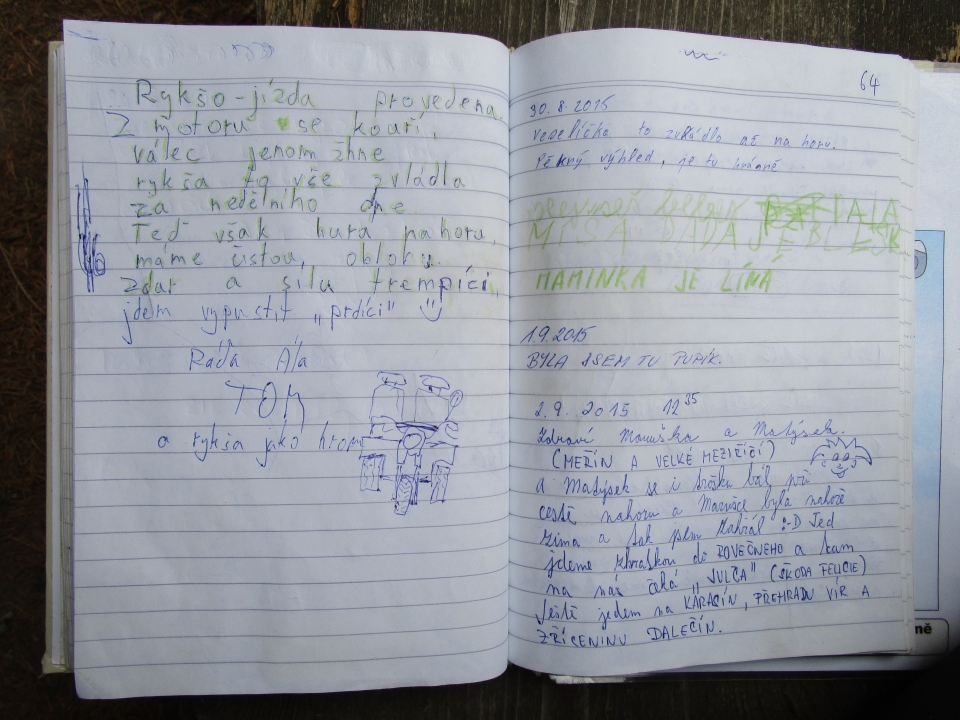 Rykšo-jízda provedena
Z motoru se kouří,
válec jenom žhne
rykša to vše zvládla
za nedělního dne
Teď však hurá nahoru,
máme ústou, oblohu.
Zdar a sílu trempíci,
jdem vypustit „prdíci"
Ráďa Ála
TOM
a rykša jako hrom
64
30.8.2015
to zvládla až na horu.
Pěkný výhled, je to krásné
MÍŠA DÁDA JE BL
MAMINKA JE LÍNÁ
1.9.2015
BYLA JSEM TU PUPÍK.
2.9.2015 12 35
Zdraví Maruška a Matýsek.
(MEŘÍN A VELKÉ MEZIŘÍČÍ)
A Matýsek se i trošku bál při
cestě nahoru a Marušce byla nahoře
zima a tak jsem :-D Teď
jdeme zkratkou do ROVEČNÉHO a tam
na nás čeká „JULČA" (ŠKODA FELICIE)
Ještě jedem na KARASÍN, PŘEHRADU VÍR A
ZŘÍCENINU DALEČÍN.